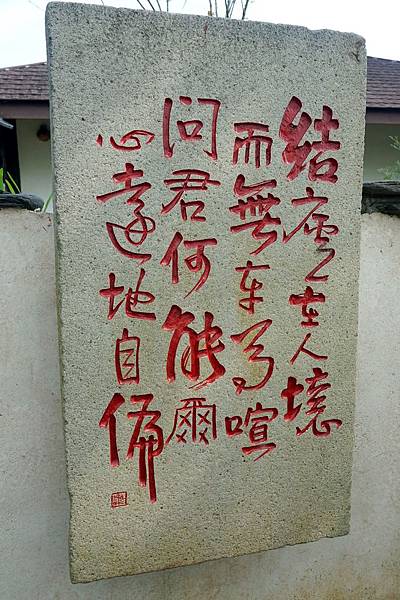 結廬在人境
而無车馬喧
問君何能爾
心遠地自偏